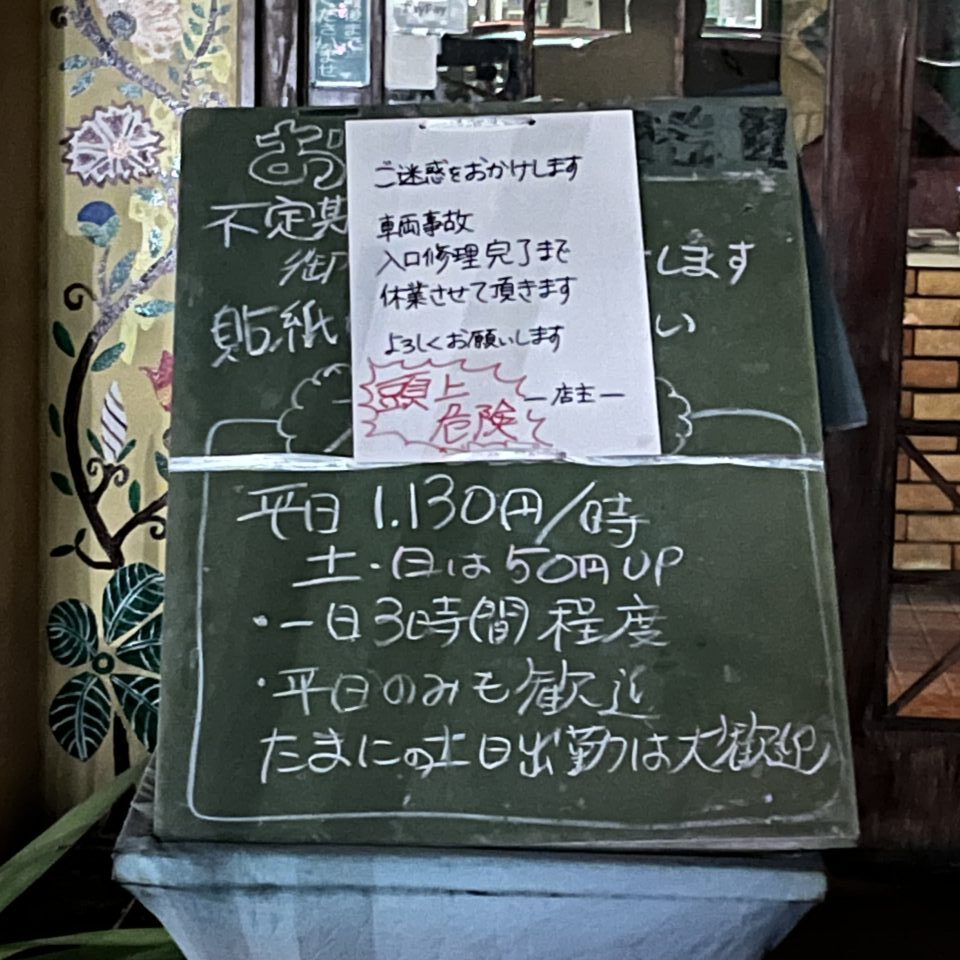 PayPay
ご迷惑をおかけします
車両事故
入口修理完了まで
休業させて頂きます
よろしくお願いします
頭上
危険
—店主—
お
不定期
御
します
貼紙
い
平日 1.130円/時
土・日は50円UP
・一日3時間程度
・平日のみも歓迎
たまにの土日出勤は大歓迎